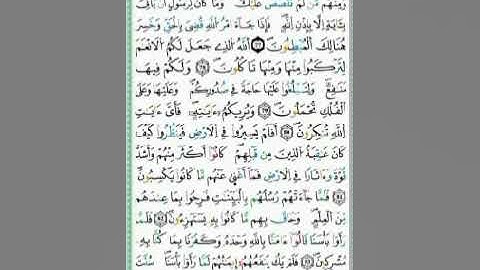 وَمِنْهُم مَّن لَّمْ نَقْصُصْ عَلَيْكَ وَمَا كَانَ لِرَسُولٍ اَنْ يَّاتِيَ
بِـَٔايَةٍ اِلَّا بِإِذْنِ اِ۬للَّهِ فَإِذَا جَآءَ امْرُ اُ۬للَّهِ قُضِيَ بِالْحَقِّ وَخَسِرَ
هُنَالِكَ اَ۬لْمُبْطِلُونَ اَ۬للَّهُ اُ۬لذِے جَعَلَ لَكُمُ اُ۬لَانْعَٰمَ
لِتَرْكَبُواْ مِنْهَا وَمِنْهَا تَاكُلُونَ وَلَكُمْ فِيهَا
مَنَٰفِعُ وَلِتَبْلُغُواْ عَلَيْهَا حَاجَةً فِے صُدُورِكُمْ وَعَلَيْهَا وَعَلَى
اَ۬لْفُلْكِ تُحْمَلُونَ وَيُرِيكُمُۥٓ ءَايَٰتِهِۦ فَأَيَّ ءَايَٰتِ
اِ۬للَّهِ تُنكِرُونَ أَفَلَمْ يَسِيرُواْ فِے اِ۬لَارْضِ فَيَنظُرُواْ كَيْفَ
كَانَ عَٰقِبَةُ اُ۬لذِينَ مِن قَبْلِهِمْ كَانُوٓاْ أَكْثَرَ مِنْهُمْ وَأَشَدَّ
قُوَّةً وَءَاثَاراً فِے اِ۬لَارْضِ فَمَآ أَغْنَىٰ عَنْهُم مَّا كَانُواْ يَكْسِبُونَ
فَلَمَّا جَآءَتْهُمْ رُسُلُهُم بِالْبَيِّنَٰتِ فَرِحُواْ بِمَا عِندَهُم
مِّنَ اَ۬لْعِلْمِ وَحَاقَ بِهِم مَّا كَانُواْ بِهِۦ يَسْتَهْزِءُونَ فَلَمَّا
رَأَوْاْ بَأْسَنَا قَالُوٓاْ ءَامَنَّا بِاللَّهِ وَحْدَهُۥ وَكَفَرْنَا بِمَا كُنَّا بِهِۦ
مُشْرِكِينَ فَلَمْ يَكُ يَنفَعُهُمُۥٓ إِيمَٰنُهُمْ لَمَّا رَأَوْاْ بَأْسَنَا سُنَّتَ